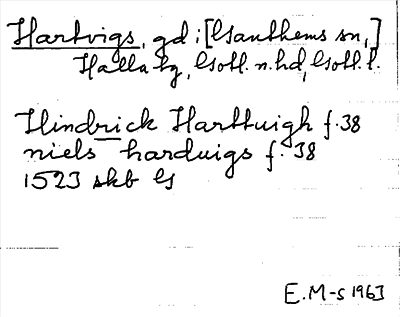 Hartvigs, gd i [Ganthems sn,]
Halla tg, Gotl. n. hd, Gotl. l.
Hindrick Harttuigh f. 38
niels harduigs f. 38
1523 skb G
E.M-s 1963